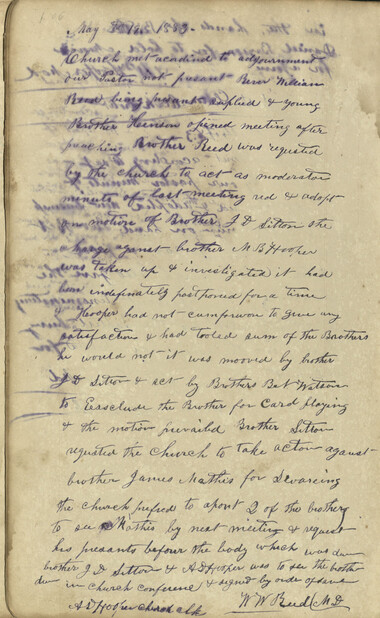 May 1889
Church met acadind to adgournment
our Pastor not presant Bror William
Reed being presant suplied & young
Brother Henson opened meeting after
preaching Brother Reed was requsted
by the church to act as moderator
minuts of last meeting red & adopt
on motion of Brother J D Sitton the
charge against brother M B Hooper
was taken up & investigated it had
ben indefinately postponed for a time
Hooper had not cum forward to give any
satisfaction & had tooled sum of the Brothers
he would not it was mooved by brother
J D Sitton & act by Brothers Bat Watson
to Easclude the Brother for Card playing
& the motion prevailed Brother Sitton
requsted the Church to take acton against
brother James Mathis for Devorcing
the church prefired to apont 2 of the brothers
to see Mathis by next meeting & request
his presants befour the body which was dun
brother J D Sitton & A D Hooper was to see the brother
dun in church conference & signed by order of same
A D Hooper church clk W W Reed M D